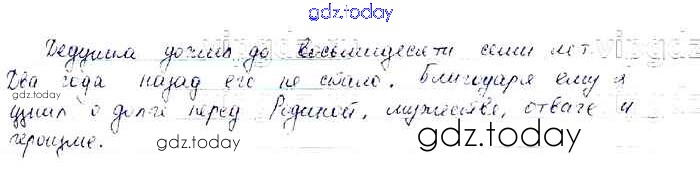 gdz.today
Дедушка дожил до восьмидесяти семи лет.
Два года назад его не стало. Благодаря ему я
узнал о долге перед Родиной, мужестве, отваге и
героизме.
gdz.today
gdz.today
gdz.today